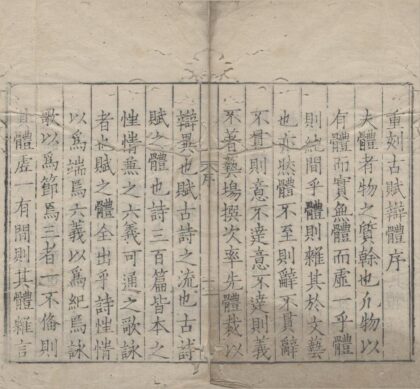 重刻古賦辯體序
夫體者物之質幹也凡物以
有體而實無體而虛一乎體
則純間乎體則雜其於文藝
也亦然體不至則辭不貫辭
不貫則意不達意不達則義
不著藝塲撰次率先體裁以
辯異也賦古詩之流也古詩
序
賦之體也詩三百篇皆本之
性情兼之六義可通之歌詠
者也賦之體全出乎詩性情
以爲端焉六義以爲紀焉詠
歌以爲節焉三者一不偹則
其體虛一有間則其體雜言